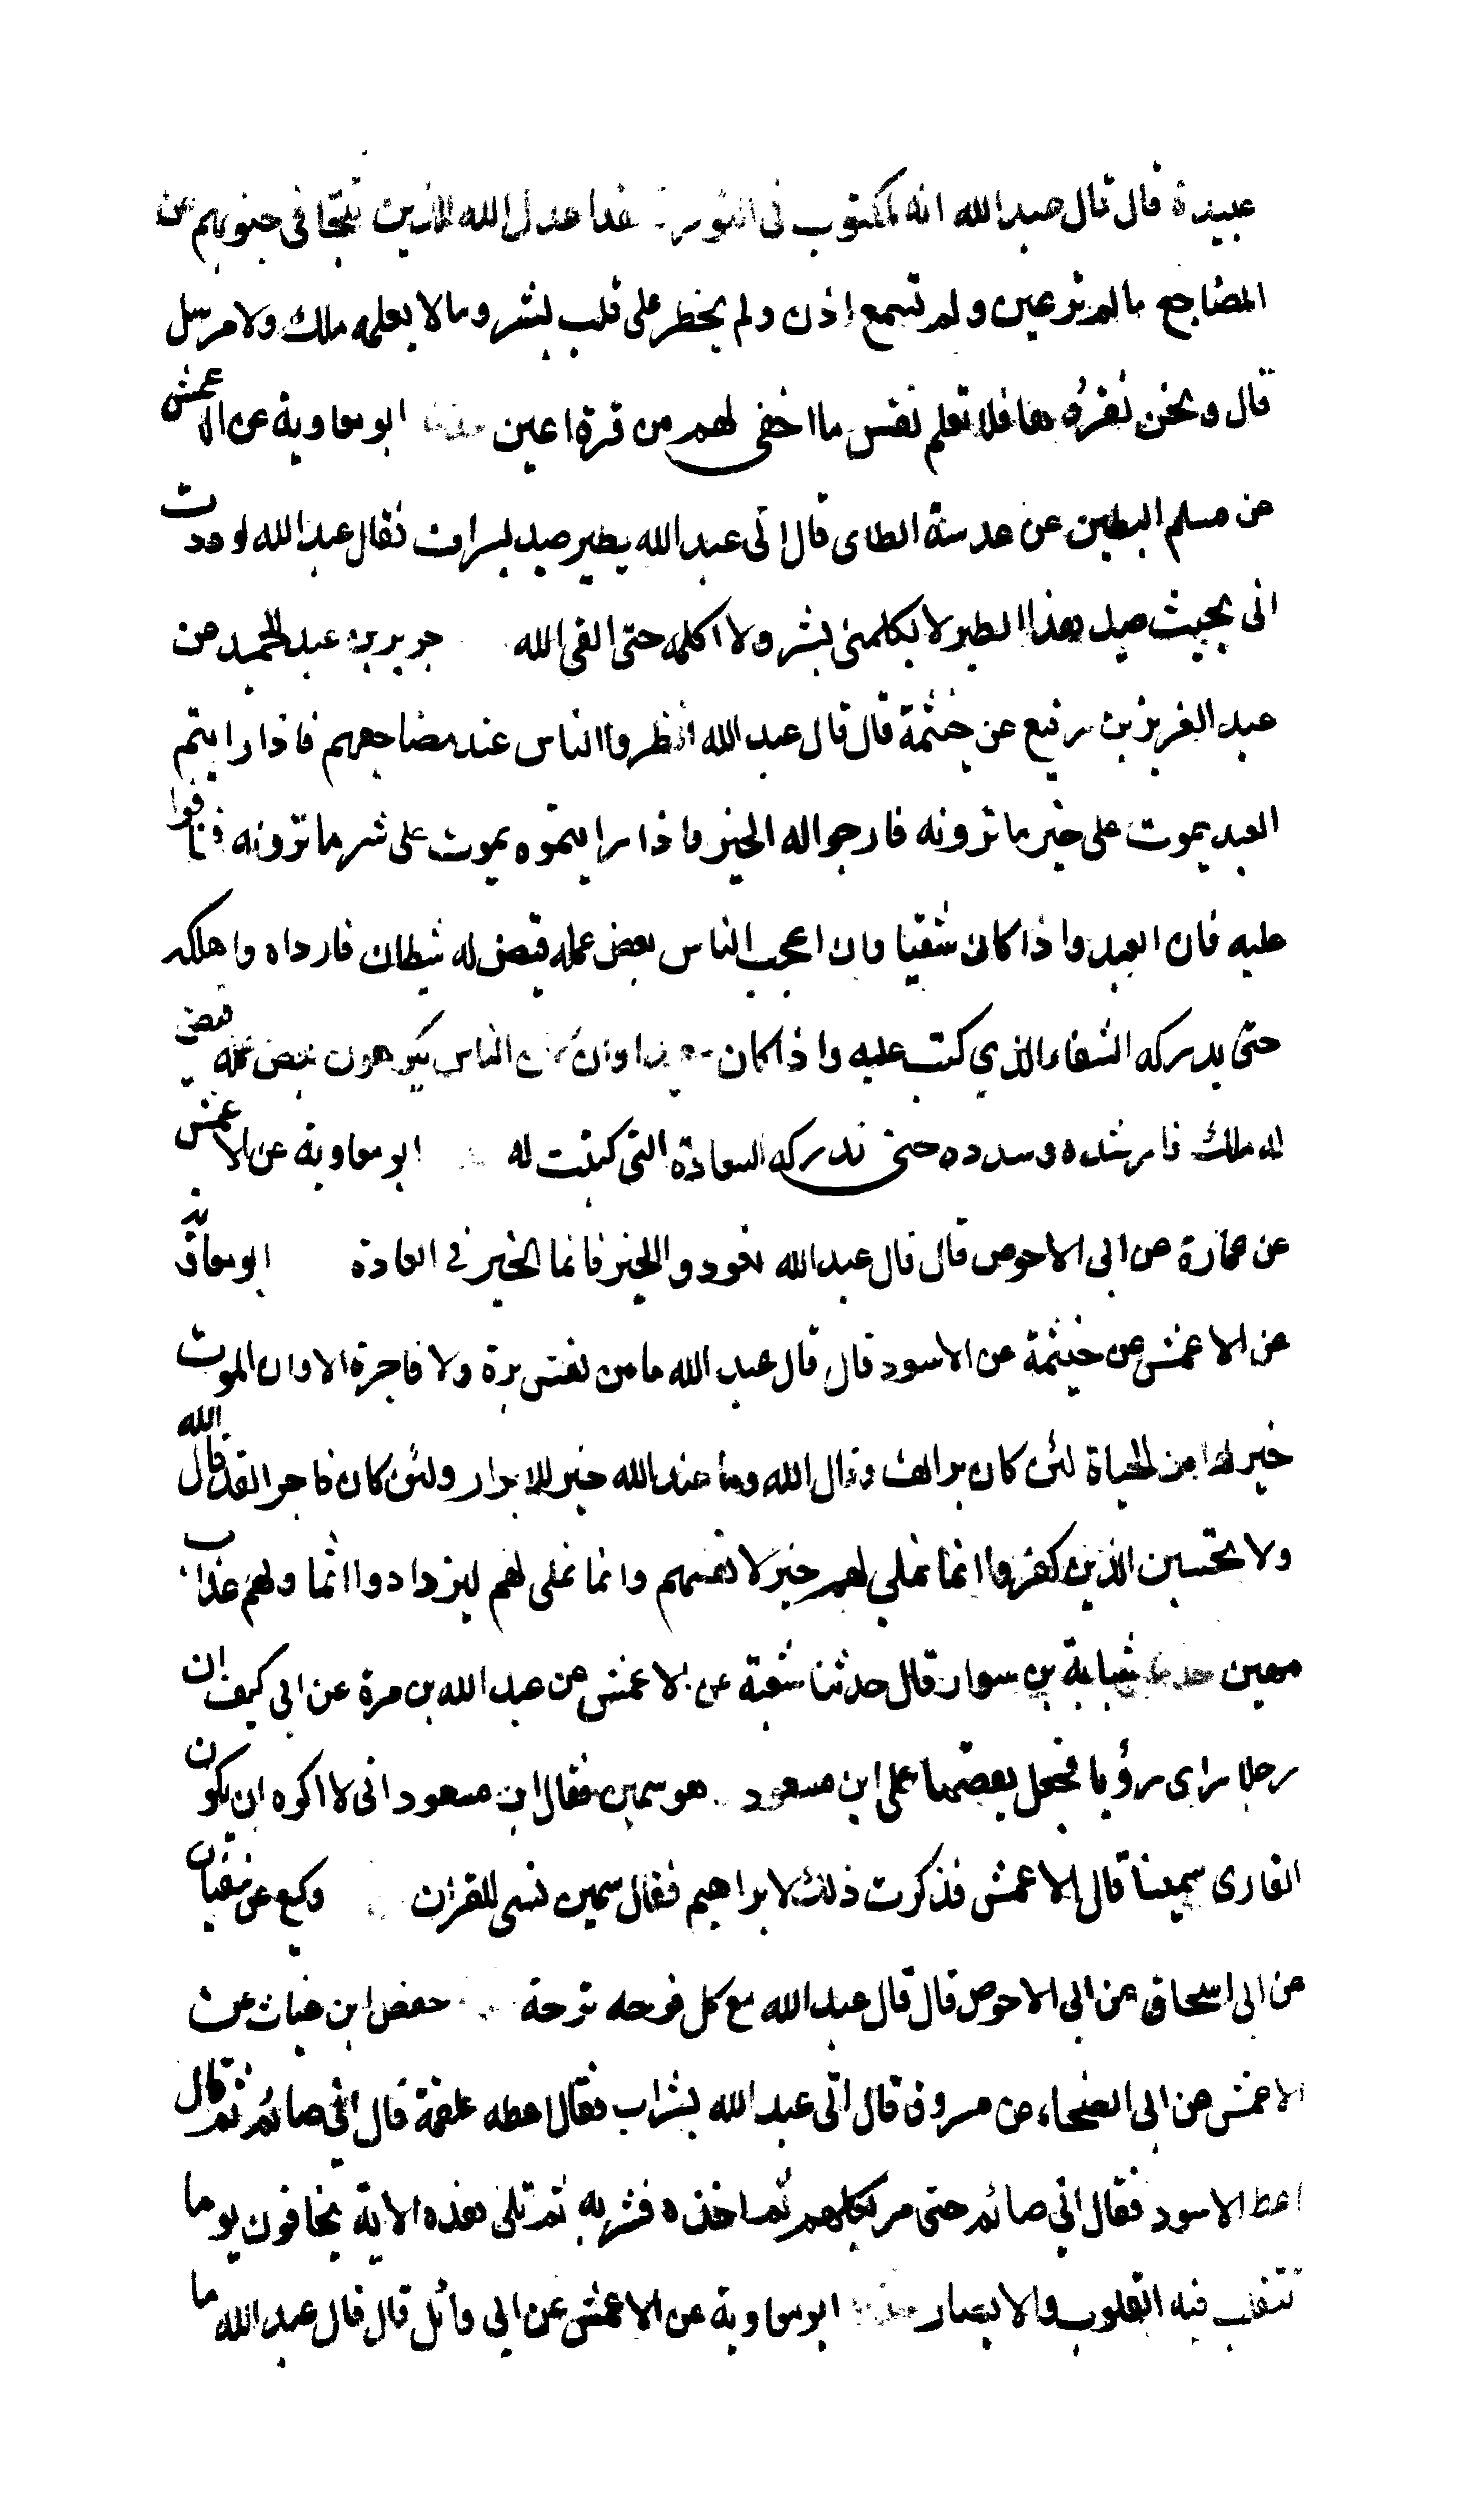 عبيدة قال قال عبد الله انه لمكتوب فى التورية لقد اعد الله للذين تتجافى جنوبهم عن
المضاجع مالم ترعين ولم تسمع اذن ولم يخطر على قلب بشر ومالا يعلمه ملك ولا مرسل
قال ونحن نقرؤها فلا تعلم نفس ما اخفى لهم من قرة اعين حدثنا ابو معاوية عن الاعمش
عن مسلم البطين عن عدسة الطاى قال اتى عبد الله بطير صيد بشراف فقال عبد الله لوددت
انى بحيث صيد هذا الطير لا يكلمنى بشر ولا اكلمه حتى القى الله جرير بن عبد الحميد عن
عبد العزيز بن رفيع عن خيثمة قال قال عبد الله انظروا الناس عند مضاجعهم فاذا رايتم
العبد يموت على خير ما ترونه فارجوا له الخير واذا رايتموه يموت على شر ما ترونه فخافوا
عليه فان العبد واذا كان شقيا وان اعجب الناس بعض عمله قيض له شيطان فارداه واهلكه
حتى يدركه الشقاء الذي كتب عليه واذا كان سعيدا وان كان الناس يكرهون بعض عمله قيض
له ملك فارشده وسدده حتى تدركه السعادة التى كتبت له ابو معاوية عن الاعمش
عن عمارة عن ابى الاحوص قال قال عبد الله تعودوا الخير فانما الخير فى العادة ابو معاوية
عن الاعمش عن خيثمة عن الاسود قال قال عبد الله ما من نفس برة ولا فاجرة الا وان الموت
خير لها من الحياة لئن كان برا لقد قال الله وما عند الله خير للابرار ولئن كان فاجرا لقد قال الله
ولا تحسبن الذين كفروا انما نملي لهم خير لانفسهم وانما نملى لهم ليزدادوا اثما ولهم عذاب
مهين حدثنا شبابة بن سوار قال حدثنا شعبة عن الاعمش عن عبد الله بن مرة عن ابى كنف ان
رجلا راى رؤيا فجعل يقصها على ابن مسعود وهو سمين فقال ابن مسعود انى لا اكره ان يكون
القارى سمينا قال الاعمش فذكرت ذلك لابراهيم فقال سمين نسى للقران وكيع عن سفيان
عن ابى اسحاق عن ابى الاحوص قال قال عبد الله مع كل فرحه ترحة حفص ابن غياث عن
الاعمش عن ابى الضحاء عن مسروق قال اتى عبد الله بشراب فقال اعطه علقمة قال انى صائم ثم قال
اعط الاسود فقال انى صائم حتى مر بكلهم ثم اخذه فشربه ثم تلى هذه الاية يخافون يوما
تتقلب فيه القلوب والابصار حدثنا ابو معاوية عن الاعمش عن ابى وائل قال قال عبد الله ما